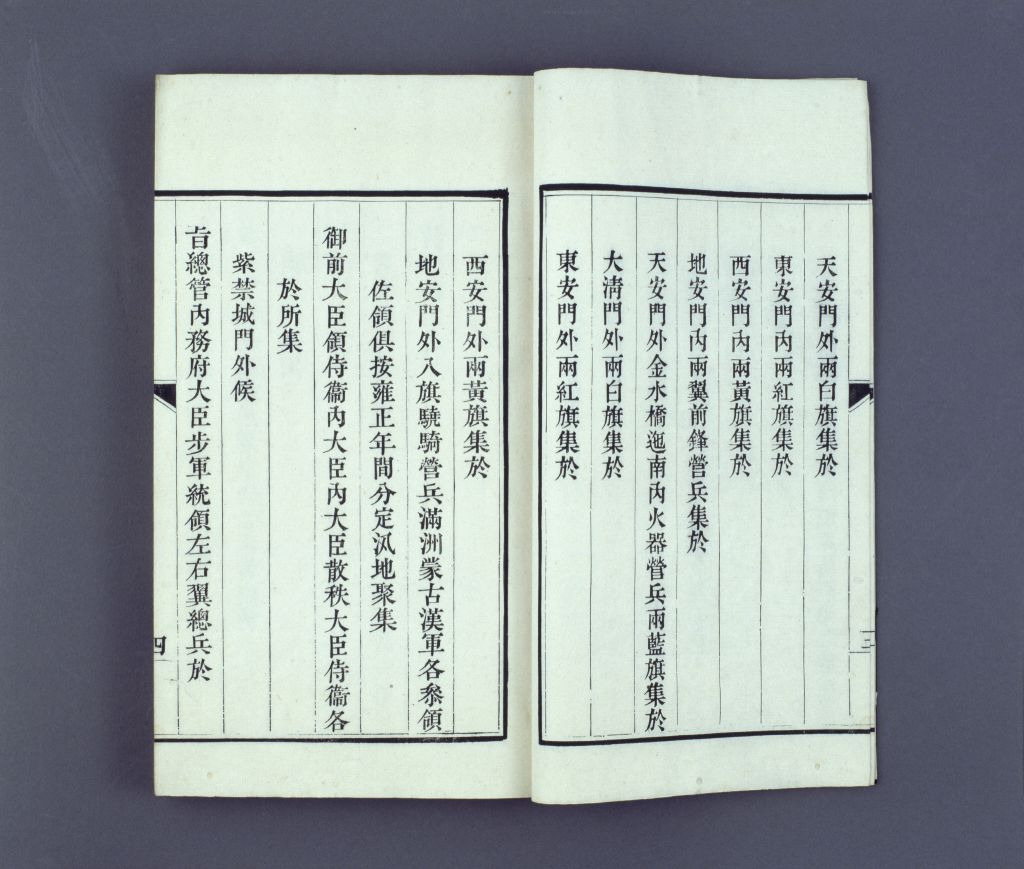 天安門外兩白旗集於
東安門內兩紅旗集於
西安門內兩黃旗集於
地安門內兩翼前鋒營兵集於
天安門外金水橋迤南內火器營兵兩藍旗集於
大淸門外兩白旗集於
東安門外兩紅旗集於
三
西安門外兩黃旗集於
地安門外八旗驍騎營兵滿洲蒙古漢軍各叅領
佐領俱按雍正年間分定汛地聚集
御前大臣領侍衞內大臣內大臣散秩大臣侍衞各
於所集
紫禁城門外候
旨總管內務府大臣步軍統領左右翼總兵於
四